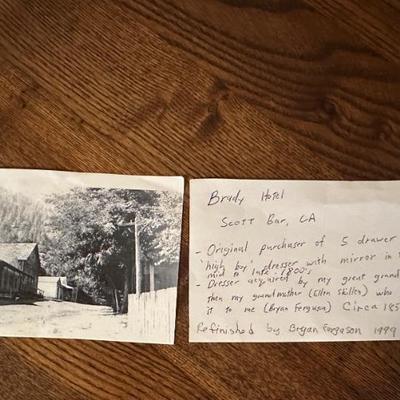 Brady Hotel
Scott Bar, CA
- Original purchaser of 5 drawer
"high boy" dresser with mirror in
mid to late 1800's
- Dresser acquired by my great grand
then my grandmother (Ellen Skillen) who
it to me (Bryan Ferguson) Circa 185
Refinished by Bryan Ferguson 1999